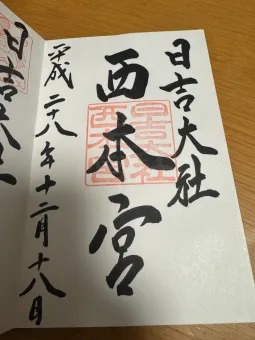 日吉大社
西本宮
日吉大社
西本宮
平成二十八年十二月十八日
日吉大